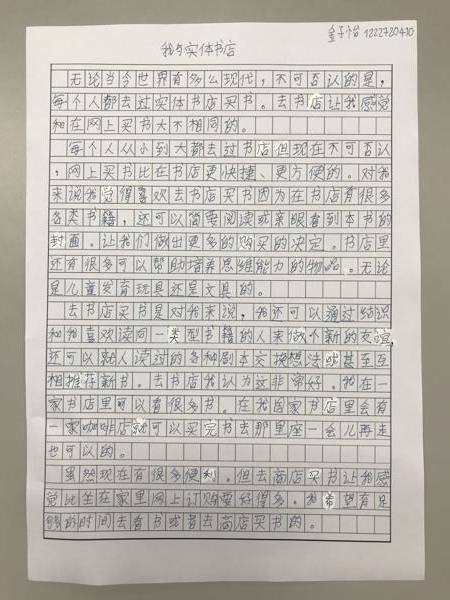 金子怡 1222720410
我与实体书店
无论当今世界有多么现代，不可否认的是，
每个人都去过实体书店买书。去书店让我感觉
和在网上买书大不相同的。
每个人从小到大都去过书店但现在不可否认
，网上买书比在书店更快捷、更方便的。对我
来说我觉得喜欢去书店买书因为在书店有很多
各类书籍，还可以简要阅读或亲眼看到本书的
封面。让我们做出更多的购买的决定。书店里
还有很多可以帮助培养思维能力的物品。无论
是儿童发育玩具还是文具的。
去书店买书是对我来说，我还可以通过结识
和我喜欢读同一类型书籍的人来做个新的友谊，
还可以跟人读过的各种剧本交换想法或甚至互
相推荐新书。去书店我认为这非常好。我在一
家书店里可以有很多书。在我国家书店里会有
一家咖啡店就可以买完书去那里座一会儿再走
也可以的。
虽然现在有很多便利。但去商店买书让我感
觉比坐在家里网上订购要好得多。我希望有足
够的时间去看书或者去商店买书的。